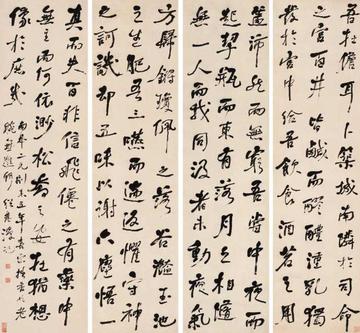 吾謫儋耳卜築城南隣於司命
之宫百井皆鹹而醪醴湩乳獨
發於宫中給吾飲食酒茗之用
蓋沛然而無窮吾嘗中夜而
起挈瓶而東有落月之相隨
無一人而我同汲者未動夜氣
方歸鏘瓊佩之落谷灩玉池
之生肥吾三嚥而遄返懼守神
之訶譏却五味以謝六塵悟一
真而失百非信飛僊之有藥中
無主而何依渺松喬之安在猶想
像於庶幾